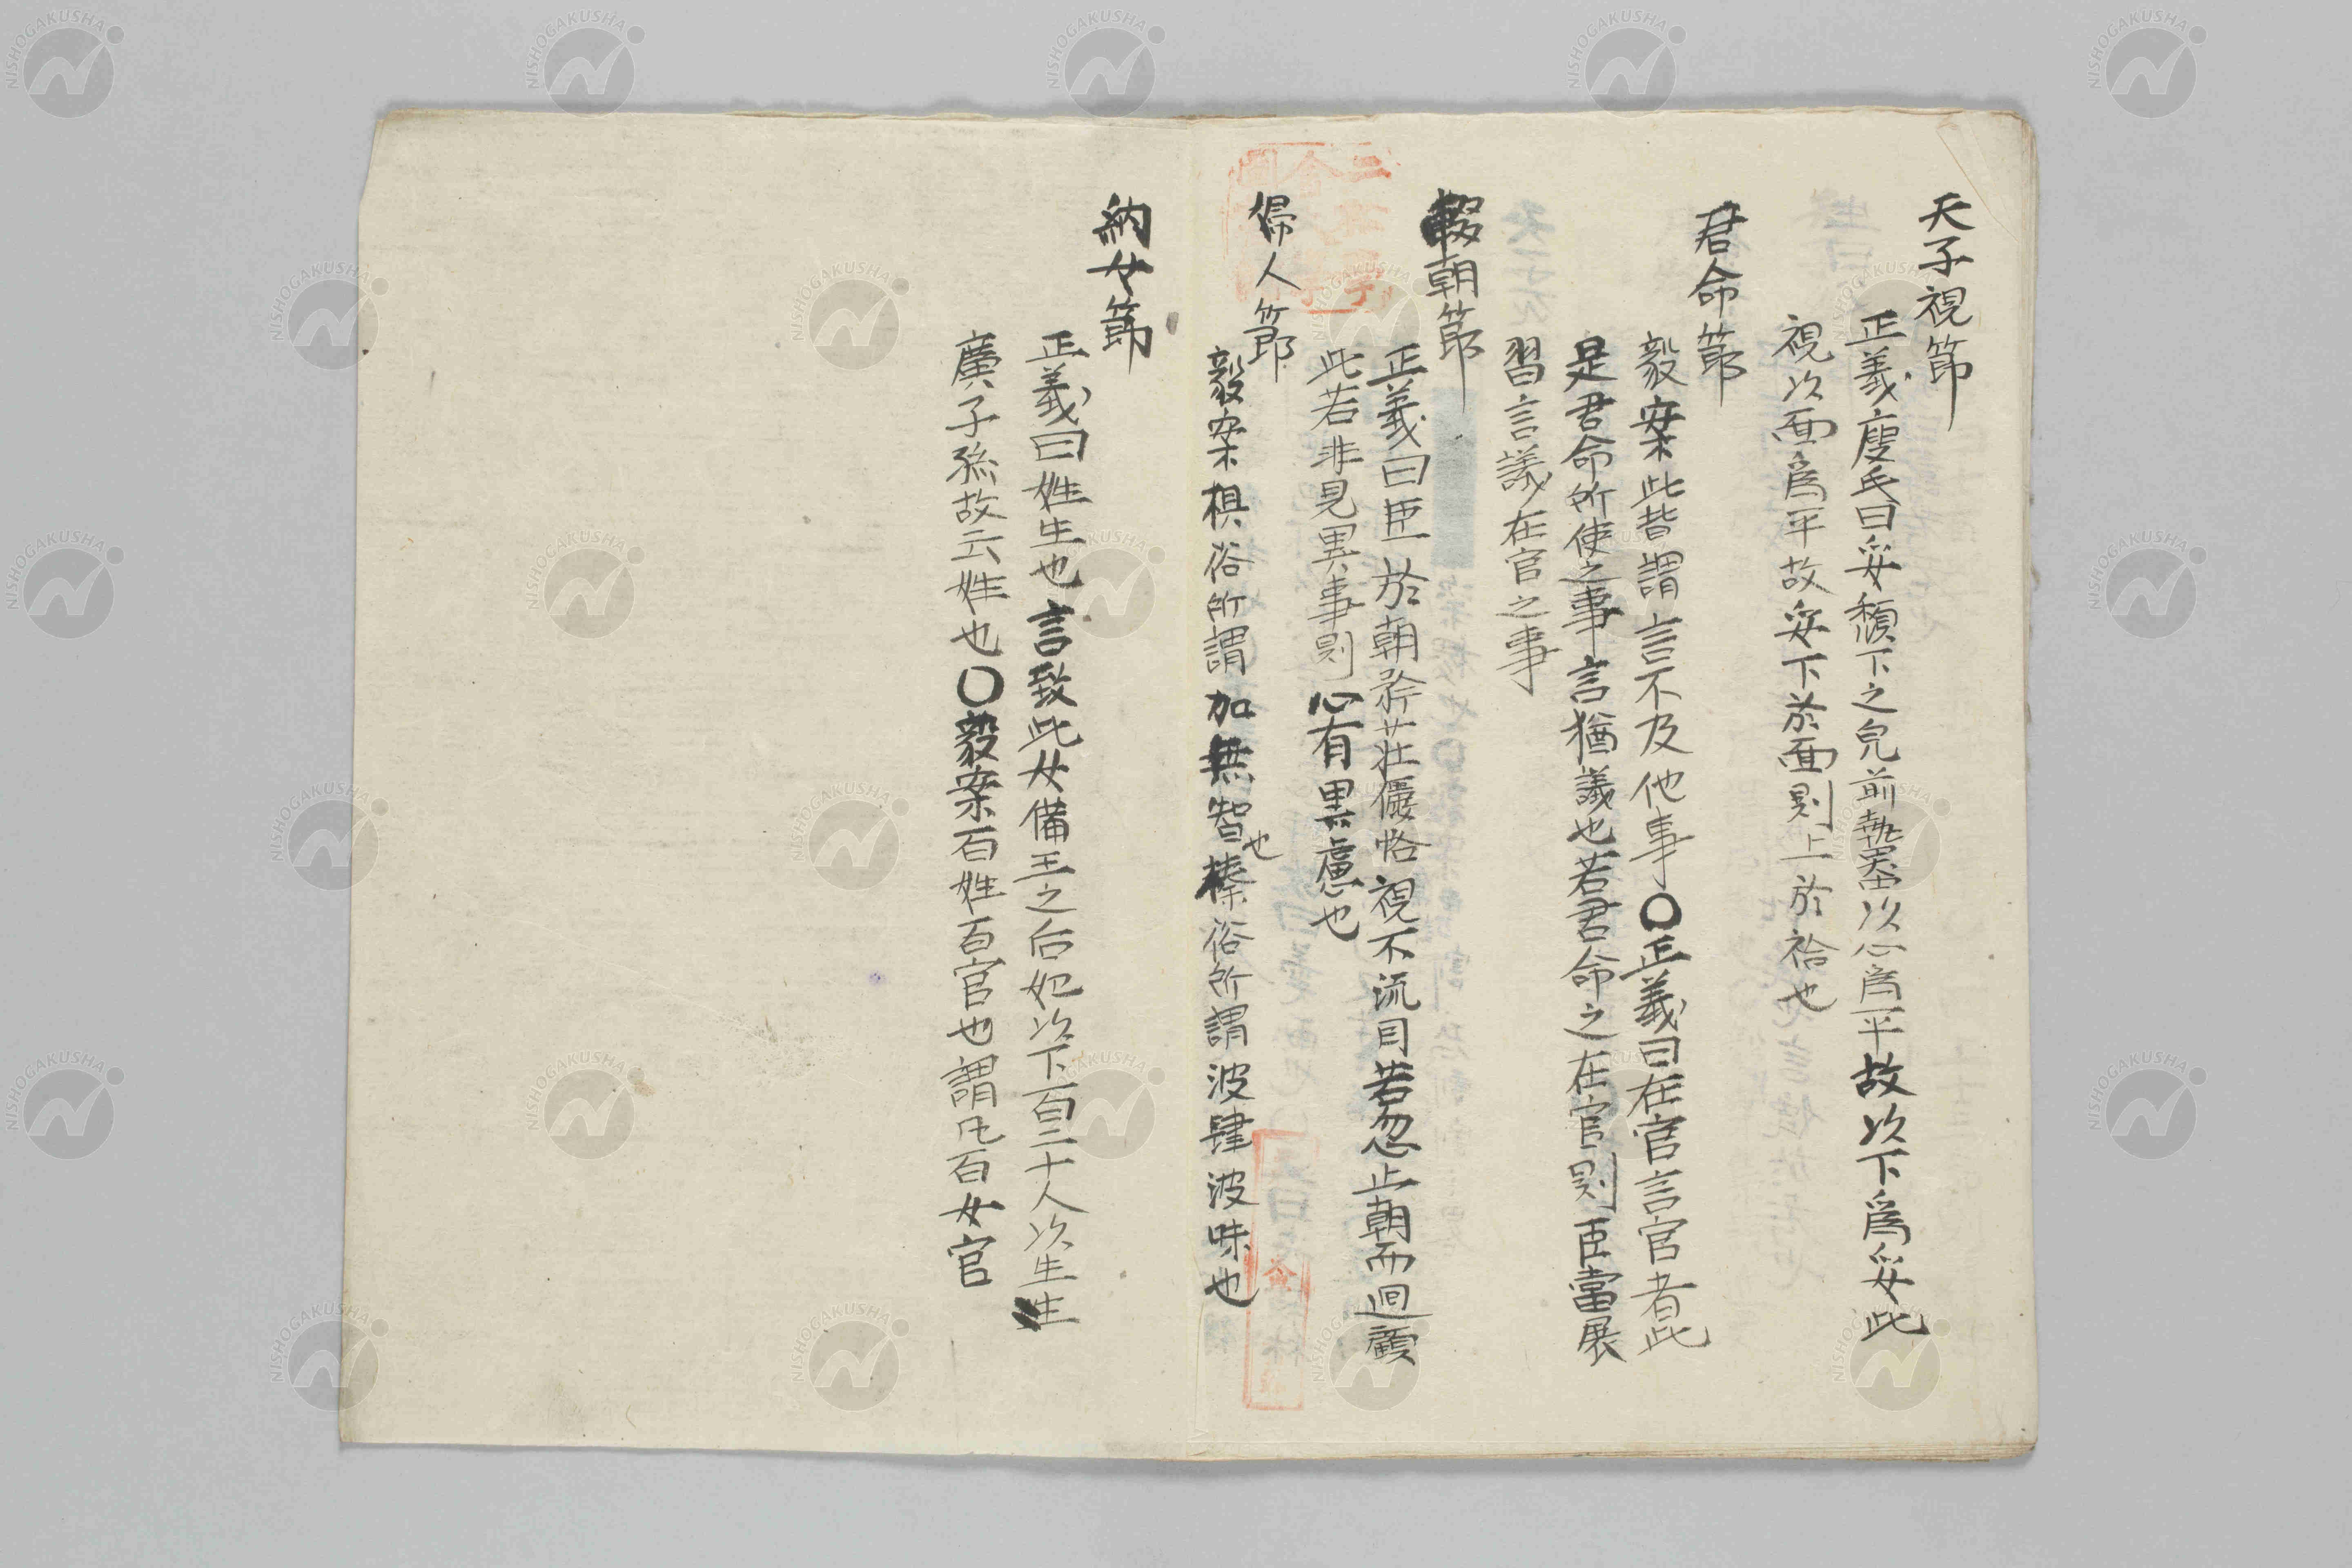 天子視節
正義庾氏曰妥頽下之皃前執噐以心爲平故以下爲妥此
視以面爲平故妥下於面則上於袷也
君命節
毅案此皆謂言不及他事〇正義曰在官言官者此
是君命所使之事言猶議也若君命之在官則臣當展
習言議在官之事
輟朝節
正義曰臣於朝矜莊儼恪視不流目若忽止朝而迴顧
此若非見異事則心有異慮也
婦人節
毅案椇俗所謂加無智也榛俗所謂波肆波味也
納女節
正義曰姓生也言致此女備王之后妃以下百二十人以生生
廣子孫故云姓也〇毅案百姓百官也謂凡百女官